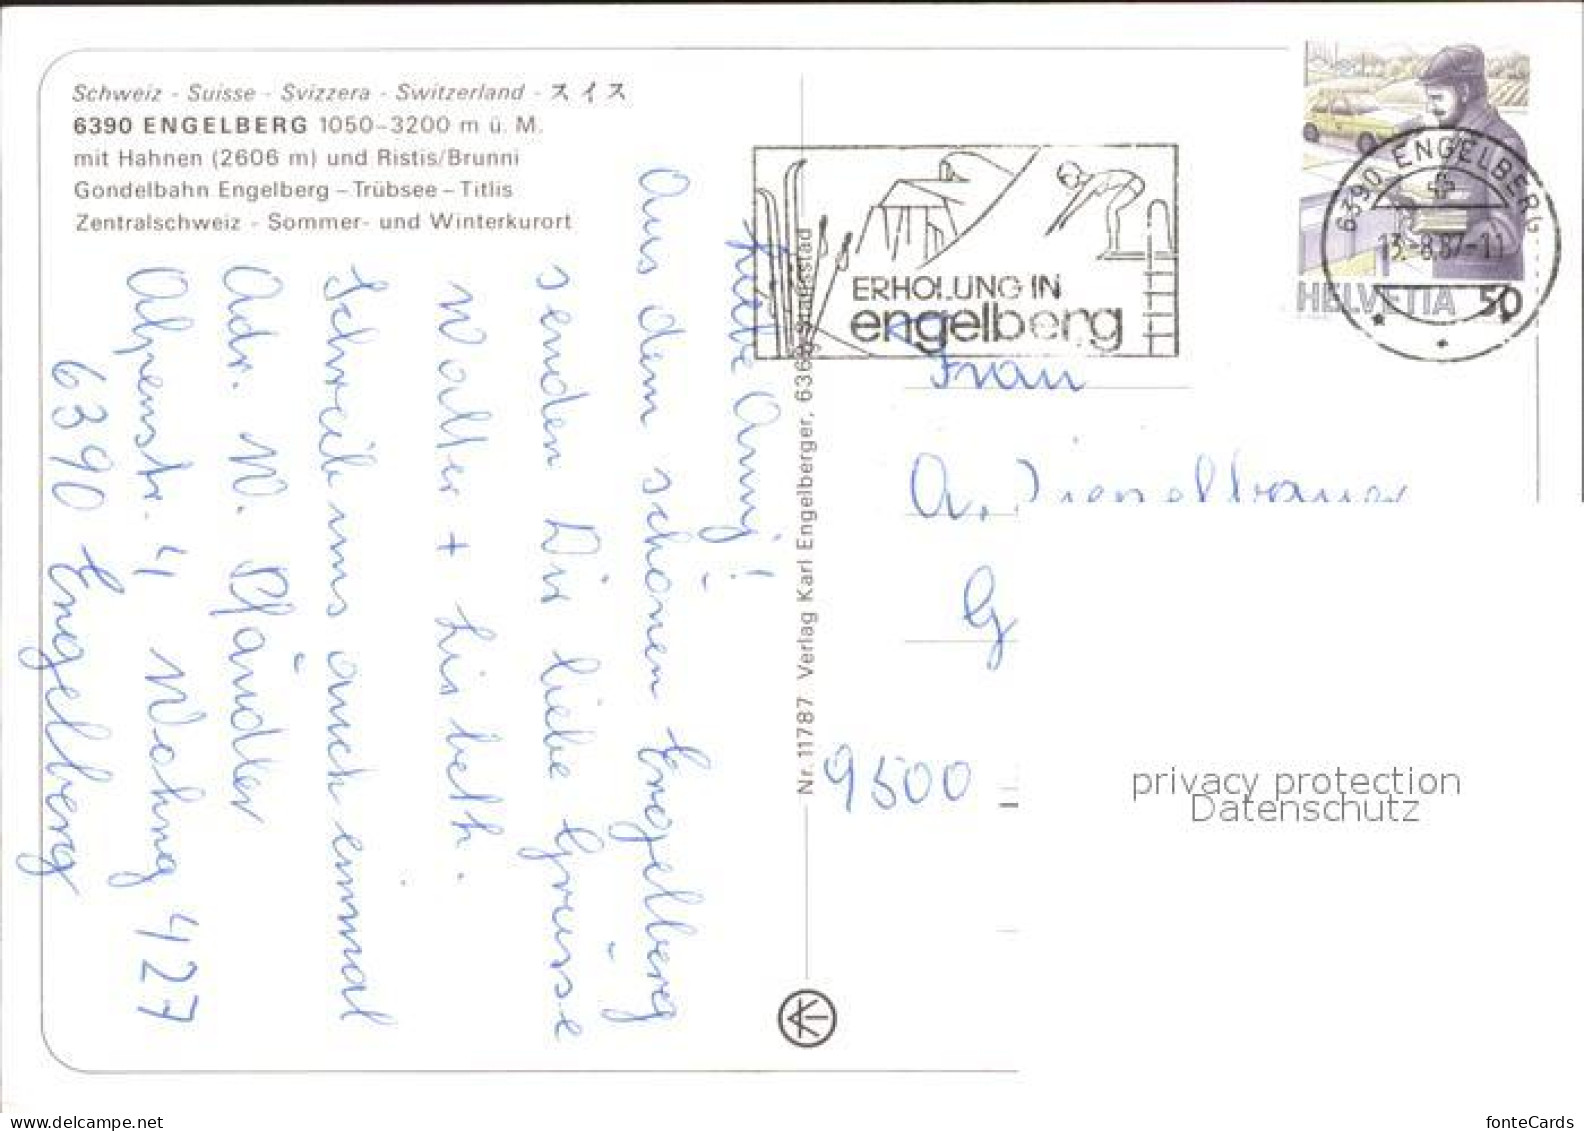 Schweiz - Suisse - Svizzera - Switzerland - スイス
6390 ENGELBERG 1050-3200 m ü. M.
mit Hahnen (2606 m) und Ristis/Brunni
Gondelbahn Engelberg - Trübsee - Titlis
Zentralschweiz - Sommer- und Winterkurort
Liebe Anny!
Aus dem schönen Engelberg
senden Dir liebe Grüsse
Walter + Lisbeth.
Schreib uns auch einmal
Adr. W. Pfändler
Alpenstr. 4 Wohng 427
6390 Engelberg
Nr. 11787 Verlag Karl Engelberger, 6362 Stansstad
ERHOLUNG IN
engelberg
6390 ENGELBERG
13.-8.87-11
HELVETIA 50
Frau
A.
G
9500
privacy protection
Datenschutz
www.delcampe.net
fonteCards